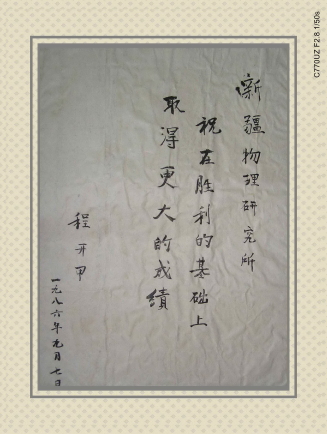 新疆物理研究所
祝在胜利的基础上
取得更大的成绩
程开甲
一九八六年九月七日
C770UZ F2.8 1/50s